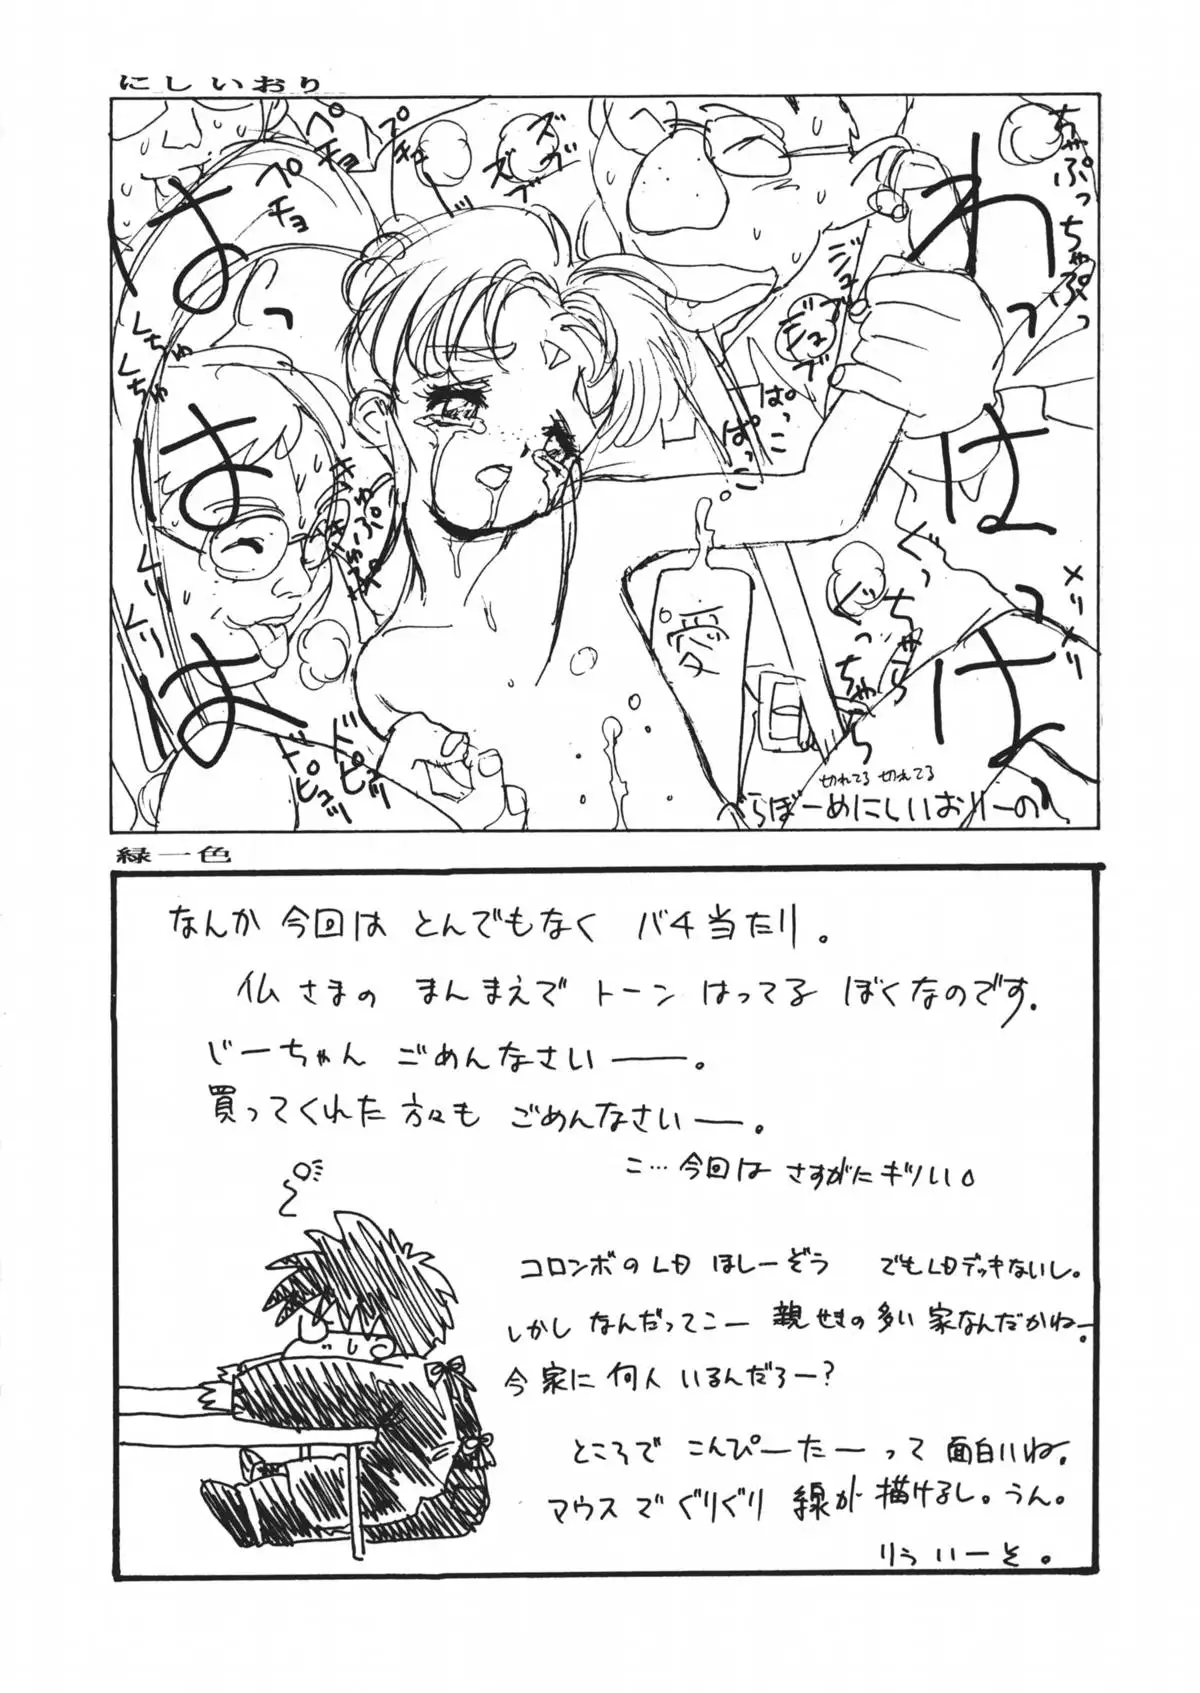 にしいおり
ペチョ
ペチョ
ズブ
ズブ
ちゃぷっちゃぷっ
はっははは
われっははは
ジュブ
ジュブ
ぱっこ
ぱっこ
くちゅ
くちゅ
くり
くり
ぐっちゃら
ぐっちゃら
メリ
メリ
愛
ドピュッ
ドピュッ
切れてる 切れてる
べらぼーめにしいおりーの
緑一色
なんか今回は とんでもなく バチ当たり。
仏さまの まんまえで トーン はってる ぼくなのです.
じーちゃん ごめんなさい――。
買ってくれた 方々も ごめんなさい―。
こ…今回は さすがにキツい。
コロンボのLD ほしーぞう でもLDデッキないし。
しかし なんだってこー 親せきの多い 家なんだかねー。
今 家に 何人 いるんだろー?
ところで こんぴーたーって 面白いね。
マウスで ぐりぐり 線が 描けるし。うん。
りういーそ。